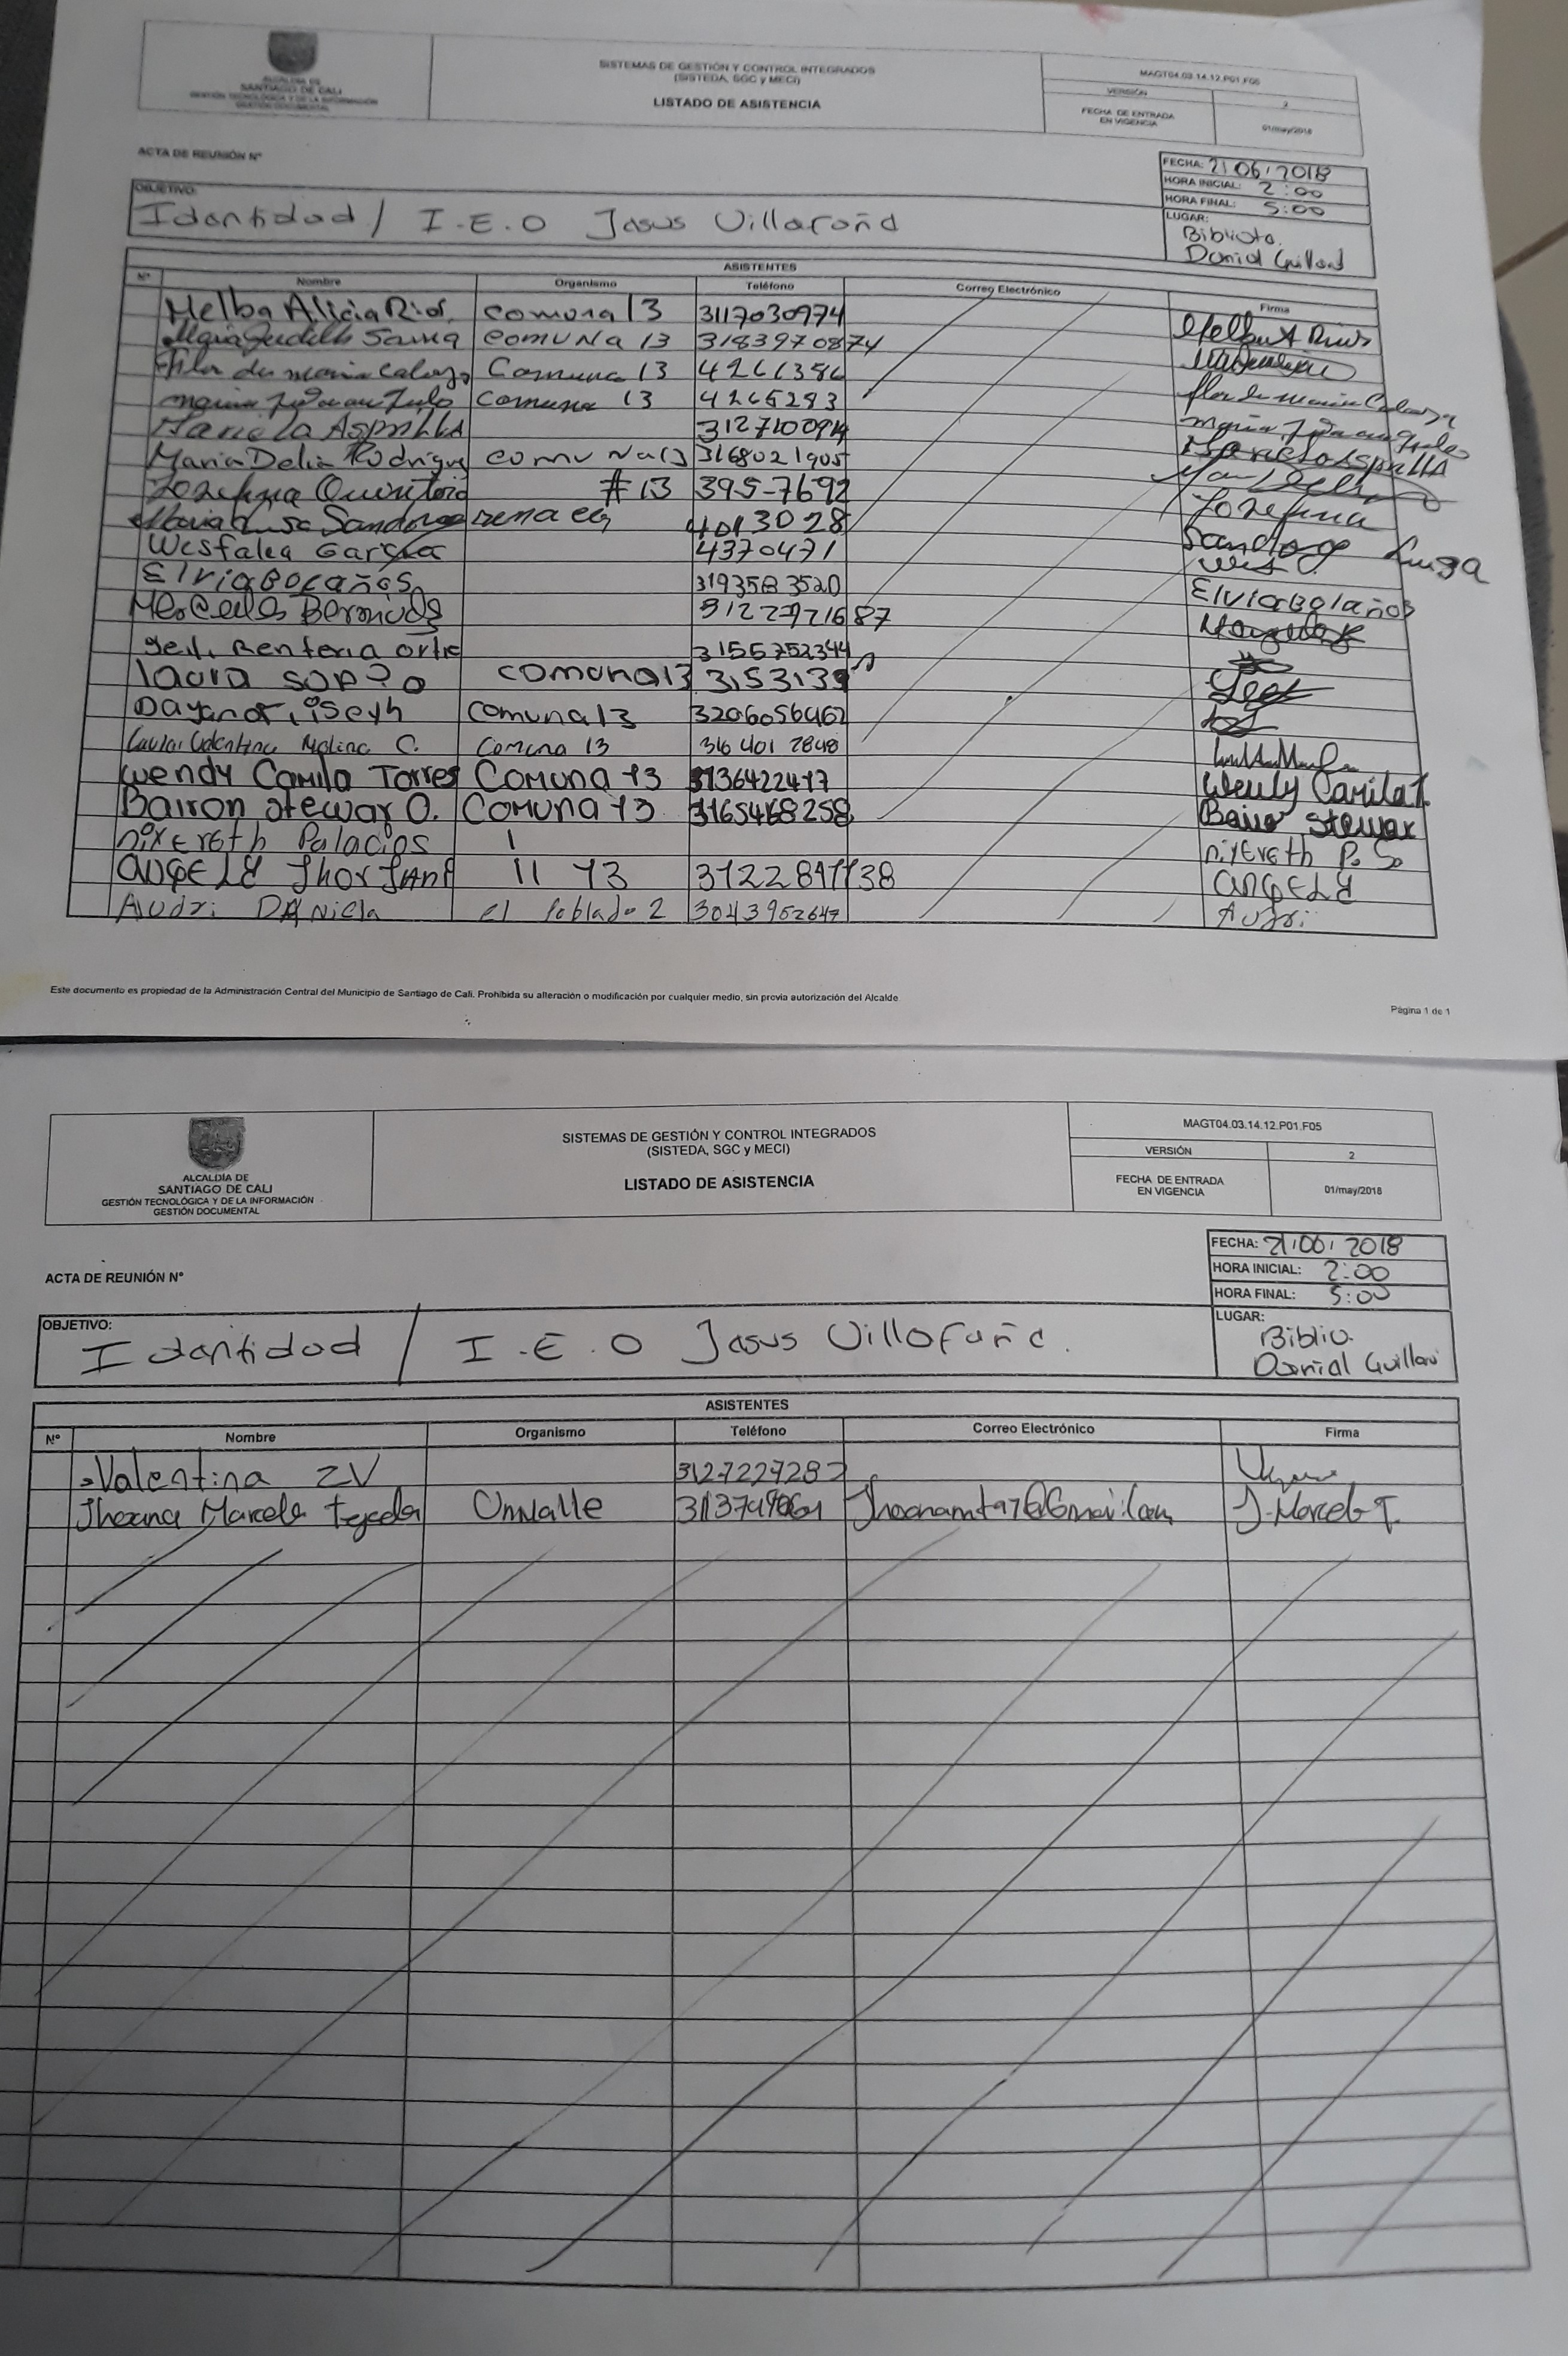 ALCALDÍA DE
SANTIAGO DE CALI
GESTIÓN TECNOLÓGICA Y DE LA INFORMACIÓN
GESTIÓN DOCUMENTAL
SISTEMAS DE GESTIÓN Y CONTROL INTEGRADOS
(SISTEDA, SGC y MECI)
LISTADO DE ASISTENCIA
MAGT04.03.14.12.P01.F05
VERSIÓN 2
FECHA DE ENTRADA
EN VIGENCIA
01/may/2018
ACTA DE REUNIÓN N°
FECHA: 21/06/2018
HORA INICIAL: 2:00
HORA FINAL: 5:00
LUGAR:
Bibliote.
Danial Guillard
OBJETIVO:
Idantidad / I.E.O Jasus Villafañe
ASISTENTES
N° Nombre Organismo Teléfono Correo Electrónico Firma
Melba Alicia Rios comuna 13 3117030974
comuna 13 3183970874
Flor de maria Comuna 13
maria comuna 13 4265293
Mariela Asprilla Mariela Asprilla
Maria Delia Rodrigue comuna 13 3168021905
Josefina #13 395-7692 Josefina
Maria Luisa Sandoval 4013028 Sandoval Luisa
Wesfalea Garcia 4370471 Wes
Elvia Bolaños 3193583520 Elvia Bolaños
Mercedes Bermudez
Renteria Ortiz 3155752344
laura comuna 13 3153139
Dayana comuna 13
Valentina Molina C. Comuna 13 316 401 2848
Wendy Camila Torres Comuna 13 3136422417 Wendy Camila T.
Bairon Stewar O. Comuna 13 3165468258 Bairon Stewar
nixereth Palacios nixereth P. So
angele Jhorjani 11 13 angele
Audri Daniela el Poblado 2 3043952647 Audri
Este documento es propiedad de la Administración Central del Municipio de Santiago de Cali. Prohibida su alteración o modificación por cualquier medio, sin previa autorización del Alcalde
Página 1 de 1
ALCALDÍA DE
SANTIAGO DE CALI
GESTIÓN TECNOLÓGICA Y DE LA INFORMACIÓN
GESTIÓN DOCUMENTAL
SISTEMAS DE GESTIÓN Y CONTROL INTEGRADOS
(SISTEDA, SGC y MECI)
LISTADO DE ASISTENCIA
MAGT04.03.14.12.P01.F05
VERSIÓN 2
FECHA DE ENTRADA
EN VIGENCIA
01/may/2018
ACTA DE REUNIÓN N°
FECHA: 21/06/2018
HORA INICIAL: 2:00
HORA FINAL: 5:00
LUGAR:
Biblio.
Danial Guillard
OBJETIVO:
Idantidad / I.E.O Jasus Villafañe.
ASISTENTES
N° Nombre Organismo Teléfono Correo Electrónico Firma
Valentina ZV 3127227282
Jhoana Marcela Tejada Univalle J. Marcela T.